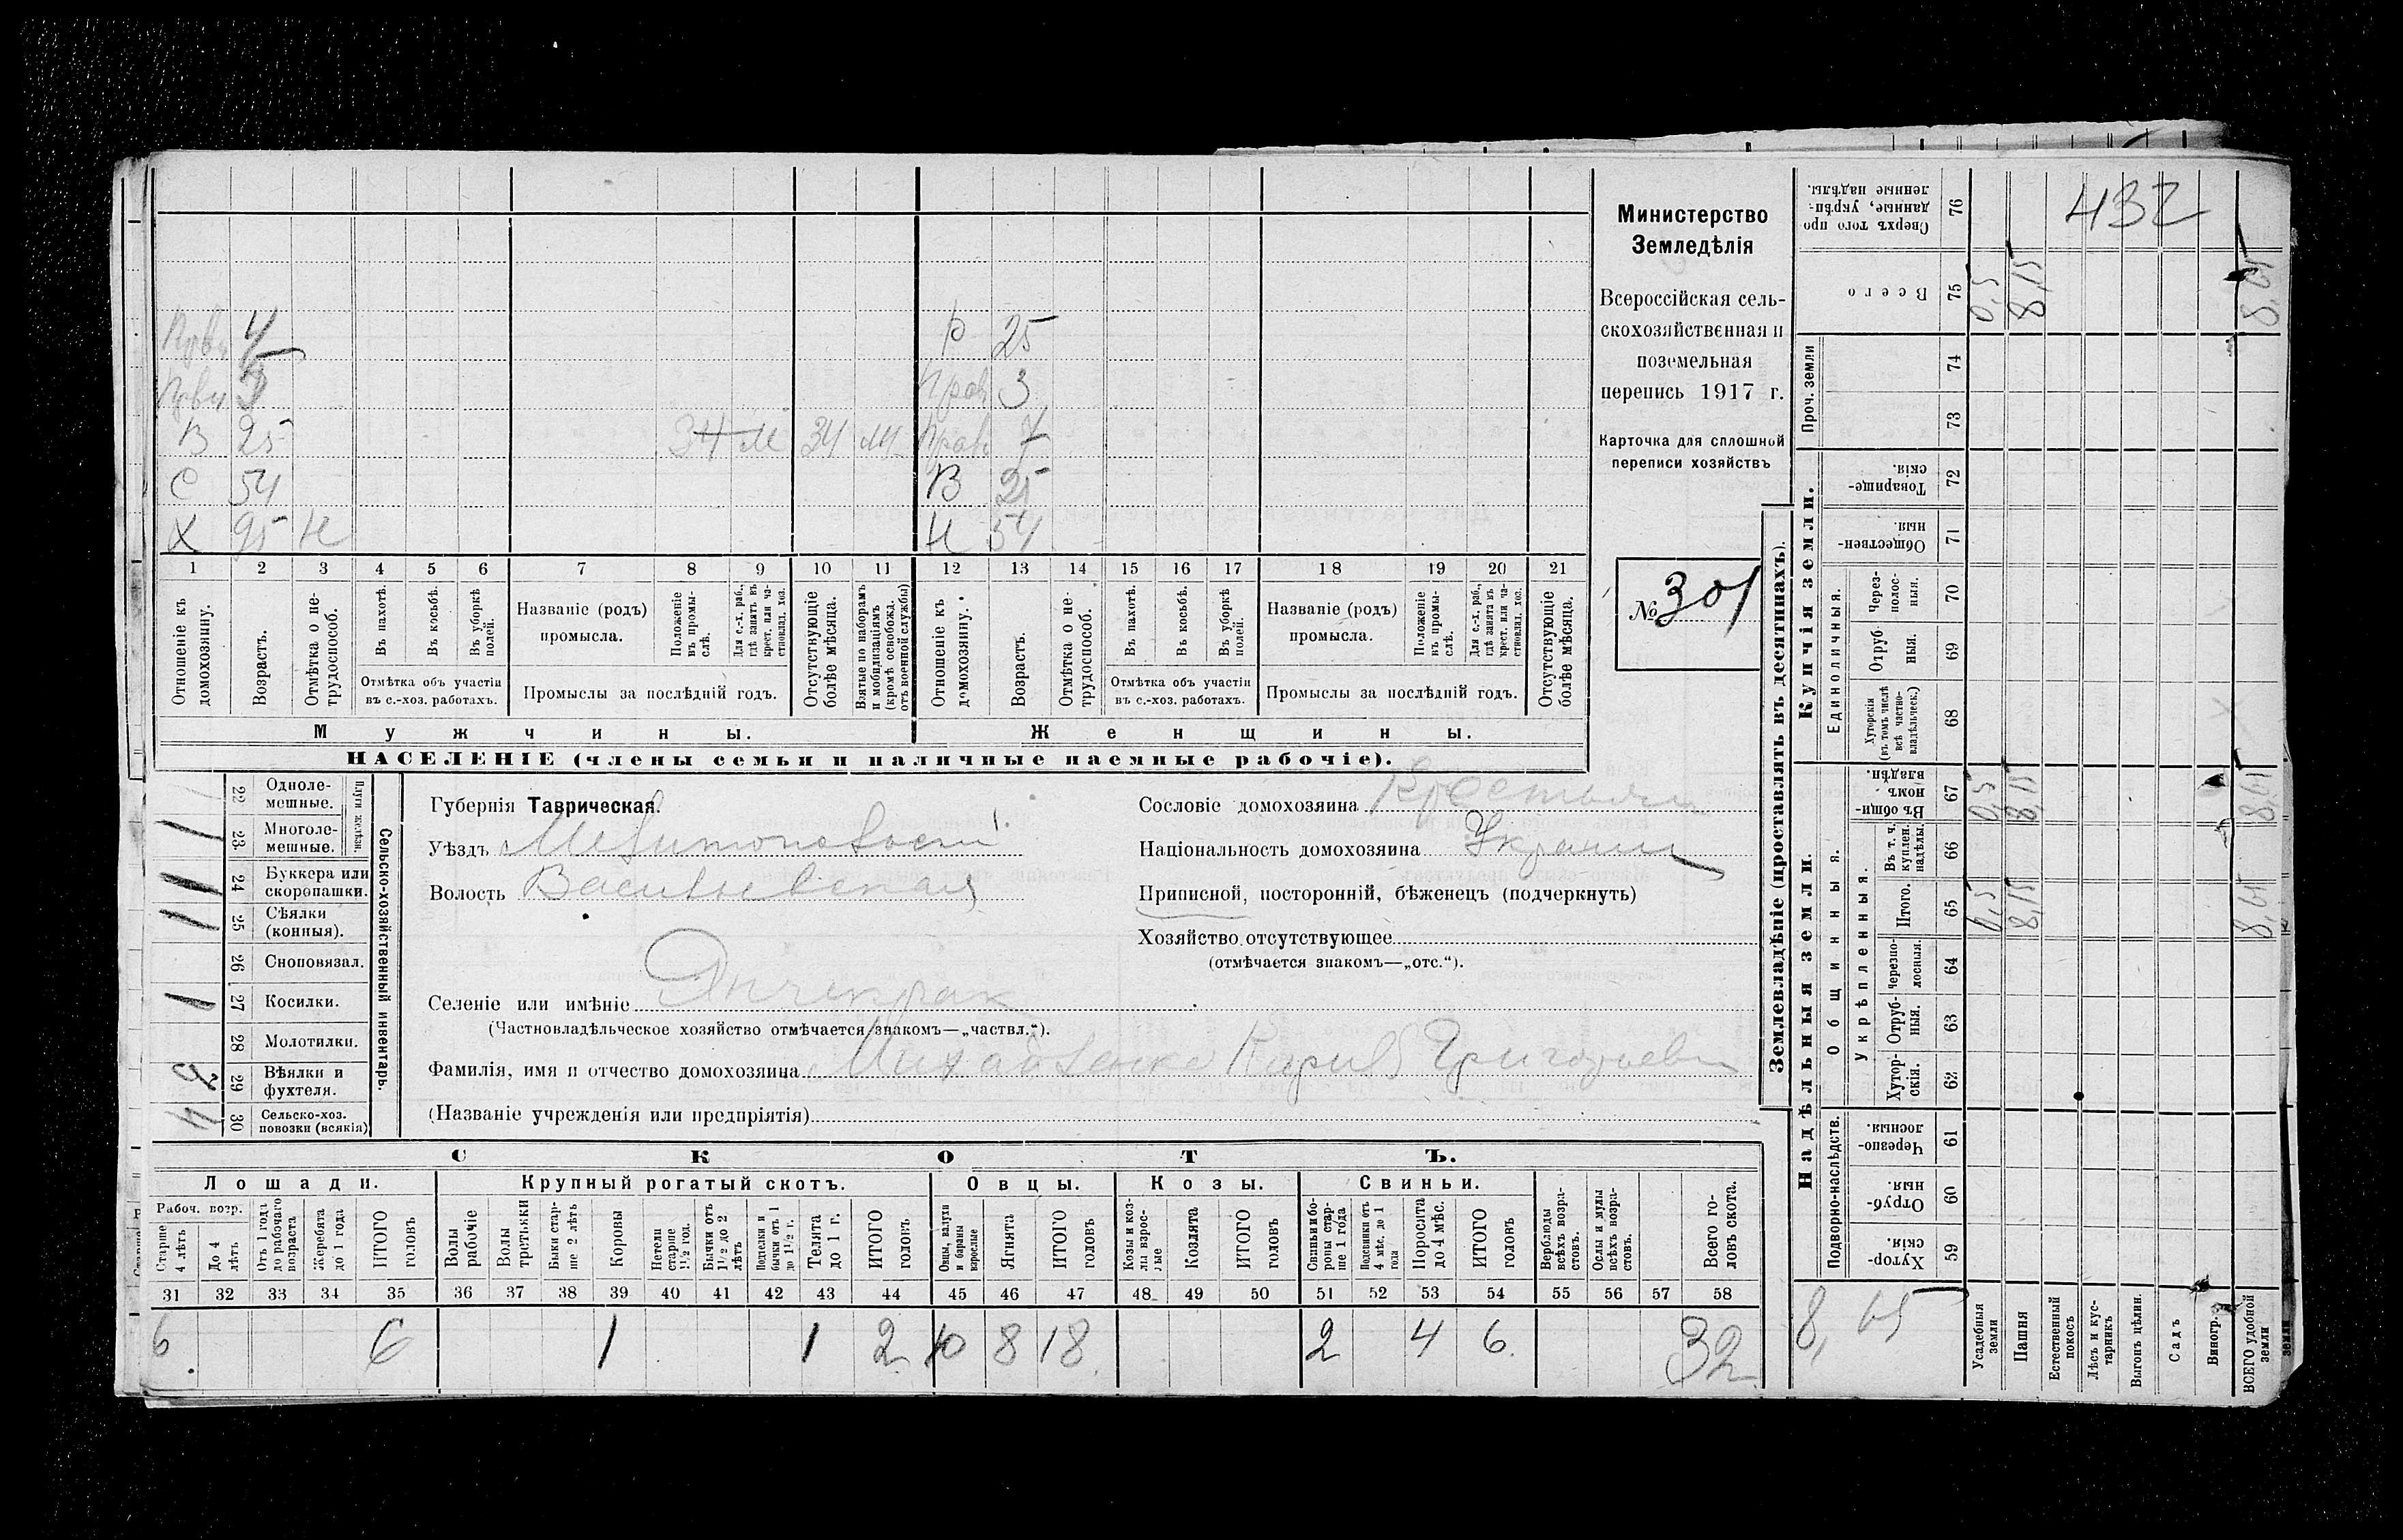 Првн 4
Првн
В 25 34 м 34 м
С 54
Х 95 Н
Р 25
Прав 3
Прав 7
В 25
М 54
1 2 3 4 5 6 7 8 9 10 11 12 13 14 15 16 17 18 19 20 21
Отношеніе къ домохозяину.
Возрастъ.
Отмѣтка о не-трудоспособ.
Въ пахотѣ.
Въ косьбѣ.
Въ уборкѣ полей.
Отмѣтка объ участіи въ с.-хоз. работахъ.
Названіе (родъ) промысла.
Положеніе въ промы-слѣ.
Для с.-х. раб., гдѣ занятъ въ крест. или ча-стновлад. хоз.
Промыслы за послѣдній годъ.
Отсутствующіе болѣе мѣсяца.
Взятые по наборамъ и мобилизаціямъ (кромѣ освобожд. отъ военной службы)
Отношеніе къ домохозяину.
Возрастъ.
Отмѣтка о не-трудоспособ.
Въ пахотѣ.
Въ косьбѣ.
Въ уборкѣ полей.
Отмѣтка объ участіи въ с.-хоз. работахъ.
Названіе (родъ) промысла.
Положеніе въ промы-слѣ.
Для с.-х. раб., гдѣ занята въ крест. или ча-стновлад. хоз.
Промыслы за послѣдній годъ.
Отсутствующіе болѣе мѣсяца.
Мужчины.
Женщины.
НАСЕЛЕНІЕ (члены семьи и наличные наемные рабочіе).
Министерство
Земледѣлія
Всероссійская сель-
скохозяйственная и
поземельная
перепись 1917 г.
Карточка для сплошной
переписи хозяйствъ
№ 301
22 Одноле-мешные.
23 Многоле-мешные.
Плуги желѣзн.
24 Буккера или скоропашки.
25 Сѣялки (конныя).
26 Сноповязал.
27 Косилки.
28 Молотилки.
29 Вѣялки и фухтеля.
30 Сельско-хоз. повозки (всякія)
Сельско-хозяйственный инвентарь.
Губернія Таврическая.
Уѣздъ Мелитопольскій
Волость Васильевская
Селеніе или имѣніе Янчекрак
(Частновладѣльческое хозяйство отмѣчается знакомъ—„частвл.“).
Фамилія, имя и отчество домохозяина Михайленко Кирил Григорьеви
(Названіе учрежденія или предпріятія)
Сословіе домохозяина Крестьян
Національность домохозяина Украин
Приписной, посторонній, бѣженецъ (подчеркнуть)
Хозяйство отсутствующее
(отмѣчается знакомъ—„отс.“).
СКОТЪ.
Лошади. Крупный рогатый скотъ. Овцы. Козы. Свиньи.
Рабоч. возр.
Старше 4 лѣтъ
До 4 лѣтъ
Отъ 1 года до рабочаго возраста
Жеребята до 1 года
ИТОГО головъ
Волы рабочіе
Волы третьяки
Быки стар-ше 2 лѣтъ
Коровы
Нетели старше 1½ год.
Бычки отъ 1½ до 2 лѣтъ
Подтелки и бычки отъ 1 до 1½ г.
Телята до 1 г.
ИТОГО головъ
Овцы, валухи и бараны взрослые
Ягнята
ИТОГО головъ
Козы и коз-лы взрос-лые
Козлята
ИТОГО головъ
Свиньи и бо-ровы стар-ше 1 года
Подсвинки отъ 4 мѣс. до 1 года
Поросята до 4 мѣс.
ИТОГО головъ
Верблюды всѣхъ возра-стовъ.
Ослы и мулы всѣхъ возра-стовъ.
Всего го-ловъ скота.
31 32 33 34 35 36 37 38 39 40 41 42 43 44 45 46 47 48 49 50 51 52 53 54 55 56 57 58
6 6 1 1 2 10 8 18 2 4 6 32
Землевладѣніе (проставлять въ десятинахъ).
Надѣльныя земли.
Купчія земли.
Проч. земли
Сверхъ того про данные, укрѣп-ленные надѣлы. 76 432
Всего 75 0,5 8,15 8,65
74
73
Товарище-скія. 72
Обществен-ныя. 71
Единоличныя.
Через-полос-ныя. 70
Отруб-ныя. 69
Хуторскія (въ томъ числѣ всѣ частно-владѣльческ.) 68
Общинныя.
Въ общи-номъ владѣн. 67 0,5 8,15 8,65
Укрѣпленныя.
Въ т. ч. куплен. надѣлы. 66
Итого. 65 0,5 8,15 8,65
Черезпо-лосныя. 64
Отруб-ныя. 63
Хутор-скія. 62
Подворно-наслѣдств.
Черезпо-лосныя. 61
Отруб-ныя. 60
Хутор-скія. 59
8,65
Усадебныя земли
Пашня
Естественный покосъ
Лѣсъ и кус-тарникъ
Выгонъ цѣлин.
Садъ
Виногр.
ВСЕГО удобной земли